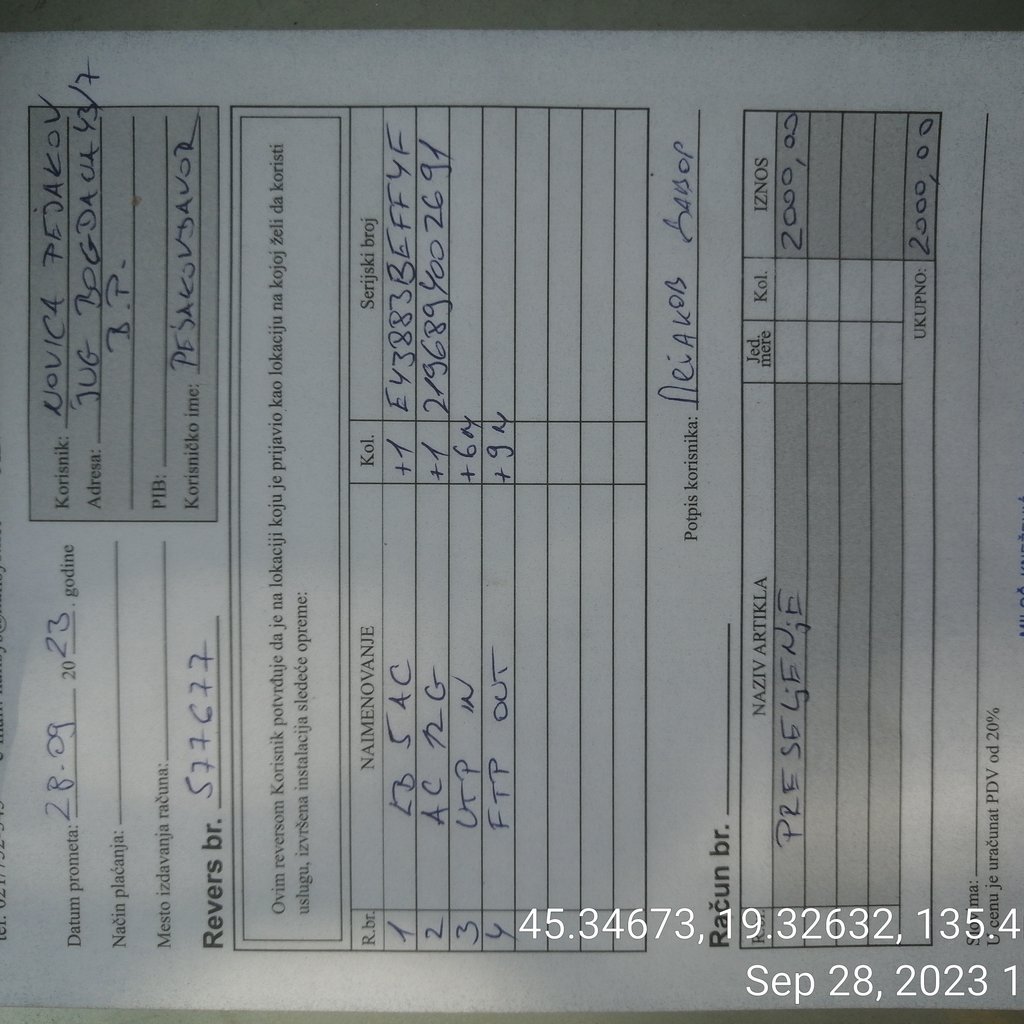 Datum prometa: 28.09 2023. godine
Način plaćanja:
Mesto izdavanja računa:
Revers br. 577677
Korisnik: NOVICA PEJAKOV
Adresa: JUG BOGDANA 43/7
B.P.
PIB:
Korisničko ime: PEJAKOVDAVOR
Ovim reversom Korisnik potvrđuje da je na lokaciji koju je prijavio kao lokaciju na kojoj želi da koristi
uslugu, izvršena instalacija sledeće opreme:
R.br. NAIMENOVANJE Kol. Serijski broj
1 LB 5 AC +1 E43883BEFF4F
2 AC 12 G +1 2196894002691
3 UTP IN +6m
4 FTP OUT +9m
Potpis korisnika: Пејаков Давор
Račun br.
NAZIV ARTIKLA Jed. mere Kol. IZNOS
PRESELJENJE 2000,00
UKUPNO: 2000,00
U cenu je uračunat PDV od 20%
45.34673, 19.32632, 135.4
Sep 28, 2023 1